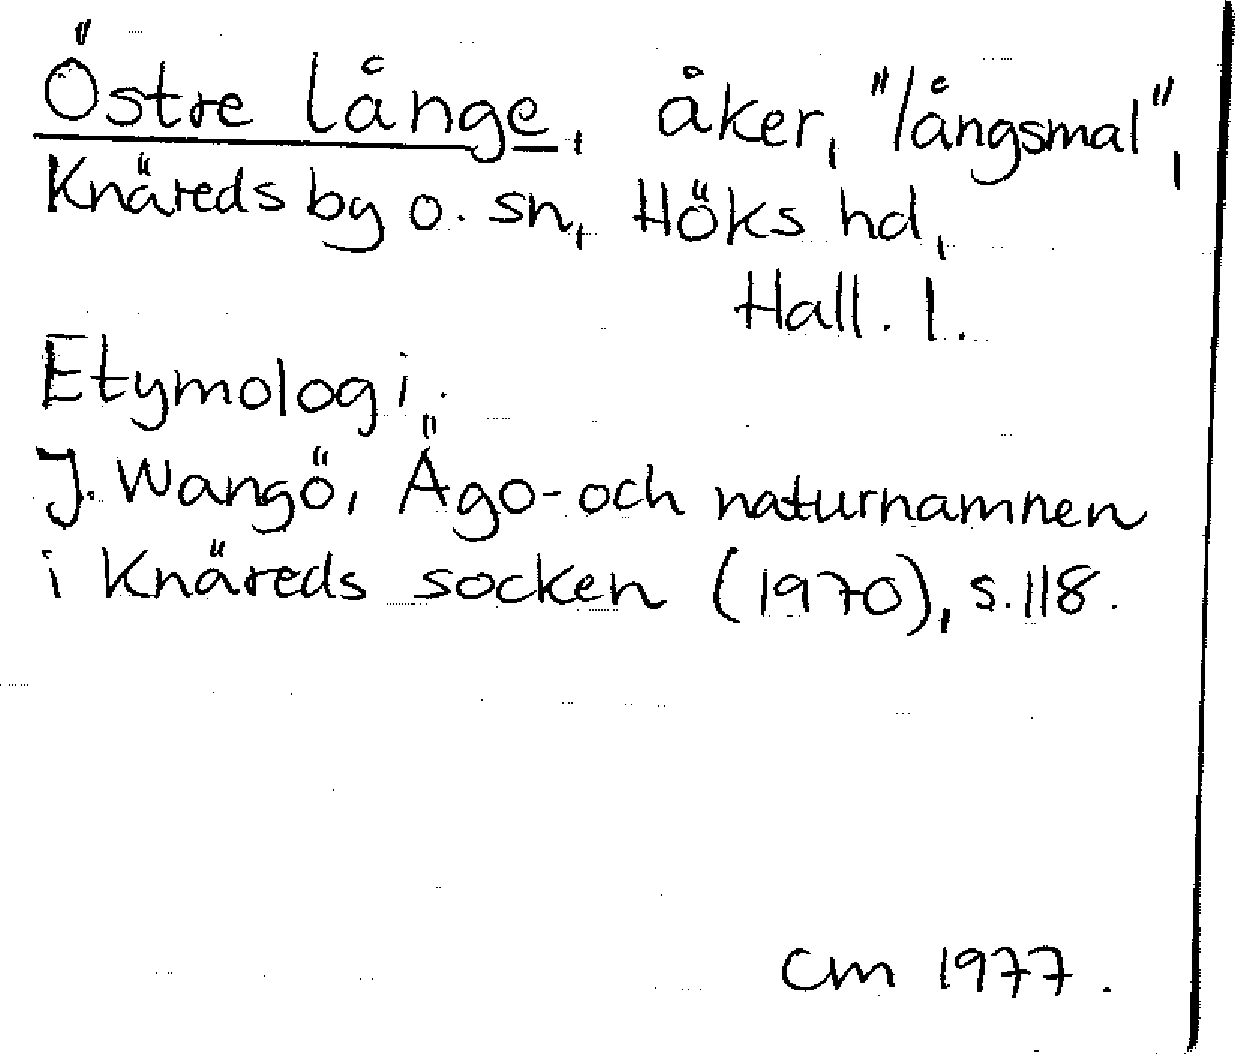 Östre långe, åker, "långsmal",
Knäreds by o. sn, Höks hd,
Hall. l.
Etymologi.
J. Wangö, Ägo- och naturnamnen
i Knäreds socken (1970), s. 118.
Cm 1977.